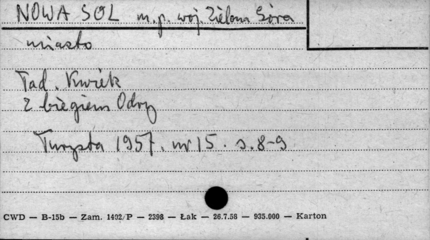 NOWA SOL m.p. woj. Zielona Góra
miasto
Tad. Kwiek
Z biegiem Odry
Turysta 1957. nr 15. s. 8-9
CWD — B-15b — Zam. 1402/P — 2398 — Łak — 26.7.56 — 935.000 — Karton